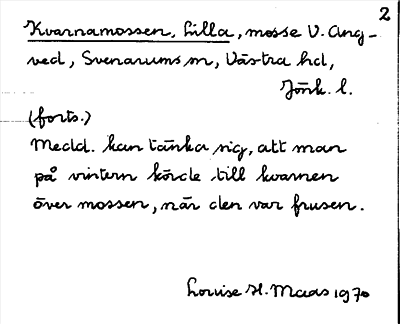 2
Kvarnamossen, Lilla, mosse V. Ang-
ved, Svenarums sn, Västra hd,
Jönk. l.
(forts.)
Medd. kan tänka sig, att man
på vintern körde till kvarnen
över mossen, när den var frusen.
Louise H. Maas 1970